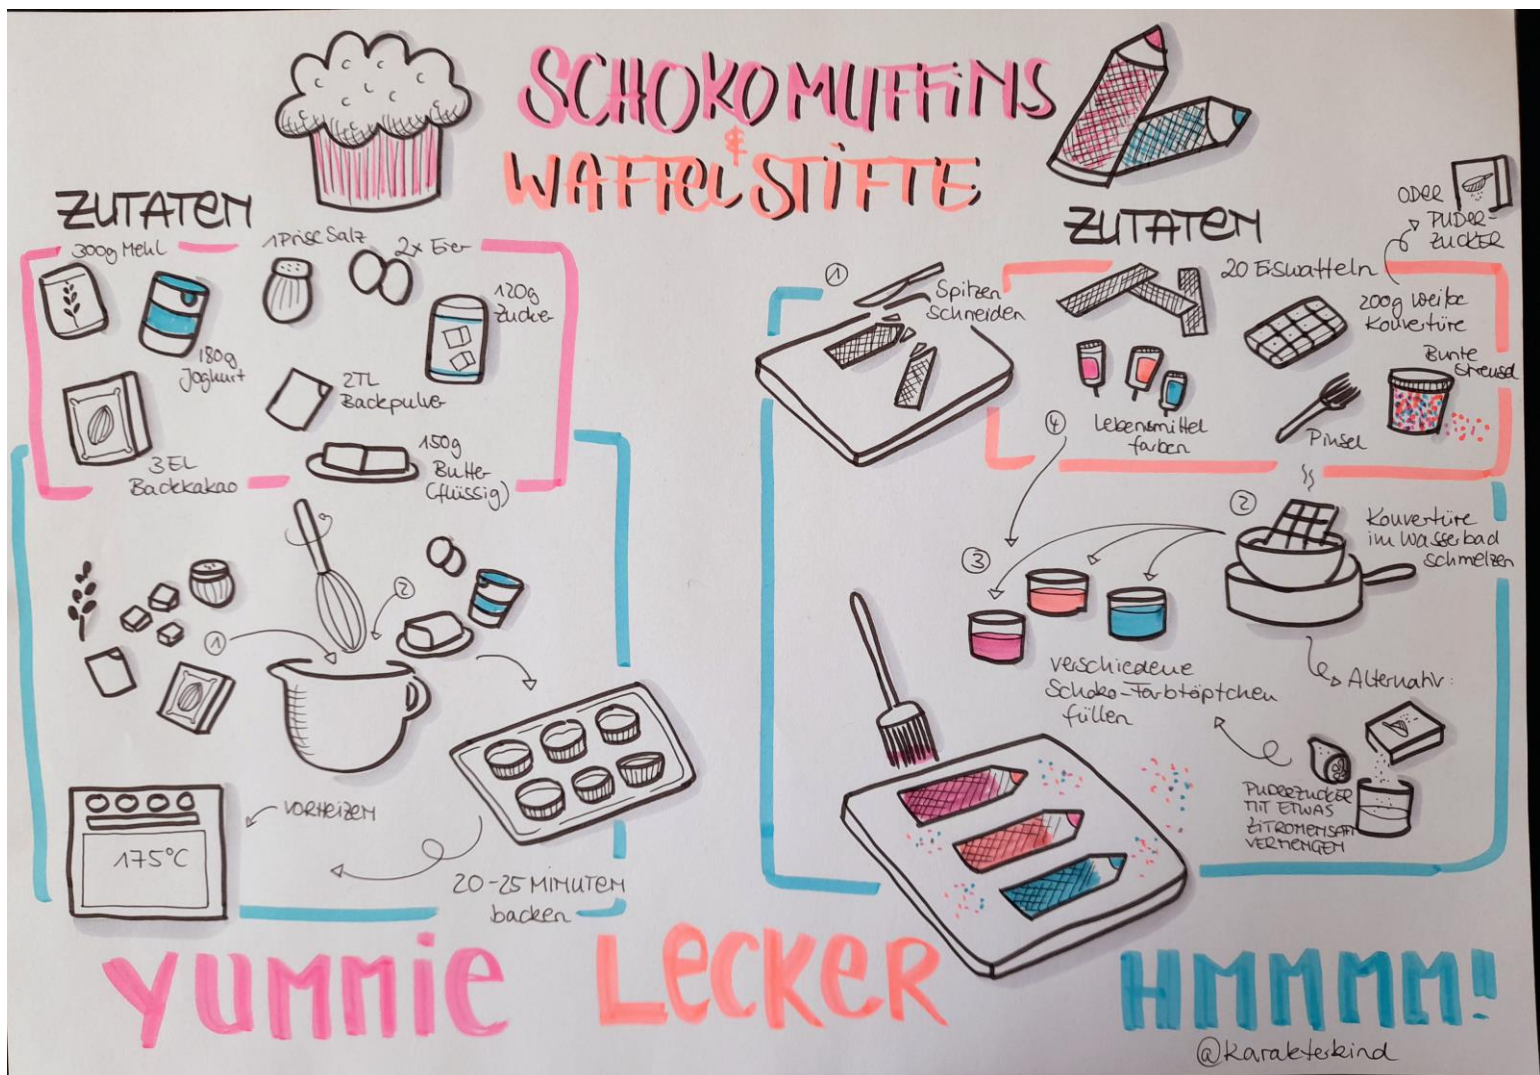 SCHOKOMUFFINS
&
WAFFELSTIFTE
ZUTATEN
300g Mehl
1 Prise Salz
2x Eier
120g
Zucker
180g
Joghurt
2TL
Backpulver
3 EL
Backkakao
150g
Butter
(flüssig)
1
2
VORHEIZEN
175°C
20-25 MINUTEN
backen
ZUTATEN
ODER
PUDER-
ZUCKER
20 Eiswaffeln
200g weiße
Kouvertüre
Bunte
Streusel
Lebensmittel
farben
Pinsel
1
Spitzen
schneiden
2
Kouvertüre
im Wasserbad
schmelzen
3
4
verschiedene
Schoko-Farbtöpfchen
füllen
Alternativ:
PUDERZUCKER
MIT ETWAS
ZITRONENSAFT
VERMENGEN
YUMMIE
LECKER
HMMMM!!
@karakterkind